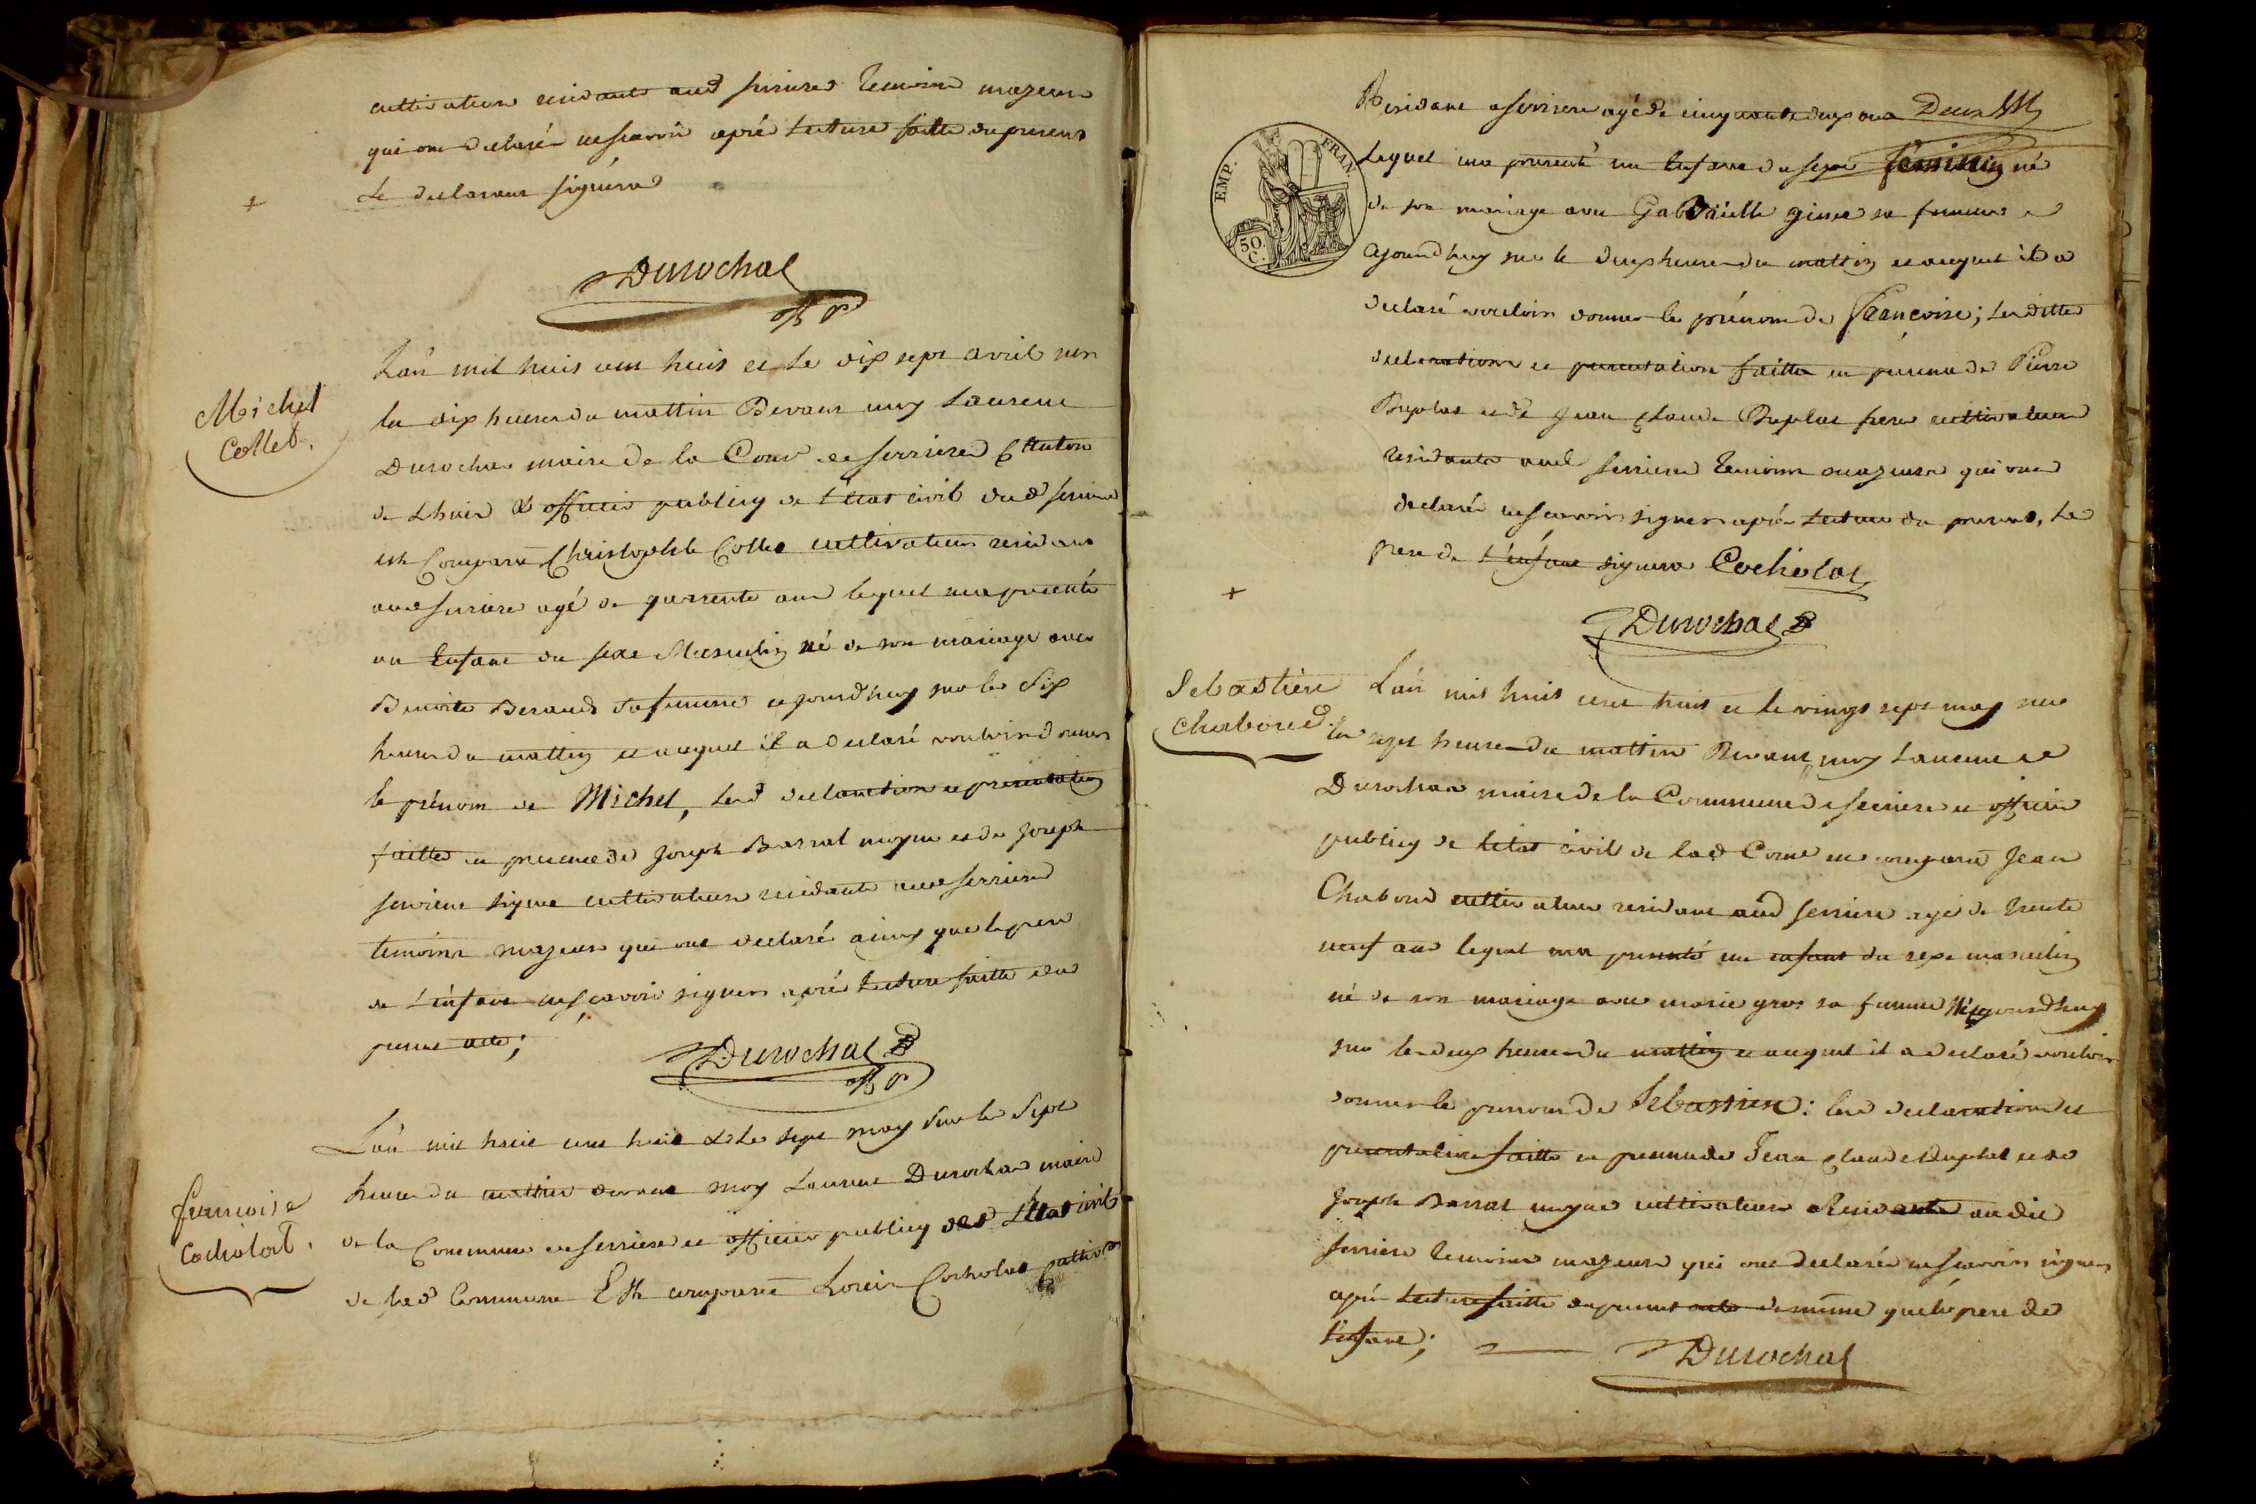 cultivateurs residants aud serrieres temoins majeurs
qui ont declarés ne scavoir après lecture faitte du present
le declarant signéra
Durochat
Michel
Collet.
L'an mil huit cent huit et le dix sept avril sur
les dix heures du mattin Devant moy Laurent
Durochat maire de la Com.e de serrieres Canton
de Lhuis & officier publicq de l'état civil dud serrieres
est Comparu Christophle Collet cultivateur residant
aud serriere agé de quarrente ans lequel ma presenté
un Enfant du sexe Masculin né de son mariage avec
Benoite Beraud sa femme cejourdhuy sur les six
heures du mattin et auquel il a declaré vouloir donner
le prénom de Michel, lesd declaration et presentation
faittes en presence de Joseph Barrat et de Joseph
cultivateurs residants aud serriere
temoins majeurs qui ont declaré ainsy que le pere
de l'enfant ne sçavoir signer après lecture faitte du
present acte;
Durochat
francoise
Cocholat.
L'an mil huit cent huit & le sept may sur les sept
heures du mattin devant moy Laurent Durochat maire
de la Commune de serriere et officier publicq de l'état civil
de lad Commune Est comparu Cocholat cultivateur
EMP. FRAN.
50 C.
Residant a serriere agé de cinquante deux ans
Lequel ma presenté un Enfant du sexe feminin né
de son mariage avec Gabrielle sa femme
cejourdhuy sur les deux heures du mattin et auquel il a
declaré vouloir donner le prénom de Françoise; les dittes
declarations et presentation faittes en presence de Pierre
Duplat et de Jean Claude Duplat frere cultivateurs
residants aud serriere temoins majeurs qui ont
declarés ne scavoir signer après lecture du present, le
pere de l'enfant signera Cocholat
Durochat
Sebastien
Chaboud.
L'an mil huit cent huit et le vingt sept may sur
les sept heures du mattin Devant moy Laurent
Durochat maire de la Commune de serriere et officier
publicq de l'état civil de lad Com.e est comparu Jean
Chaboud cultivateur residant aud serriere agé de trente
neuf ans lequel ma presenté un enfant du sexe masculin
né de son mariage avec marie gros sa femme cejourdhuy
sur les deux heures du mattin et auquel il a declaré vouloir
donner le prenom de Sebastien: lesd declaration et
presentation faitte en presence de Jean Claude Duplat et de
Joseph Barrat cultivateurs Residants audit
serriere temoins majeurs qui ont declarés ne scavoir signer
après lecture faitte du present acte de même que le pere de
l'enfant;
Durochat